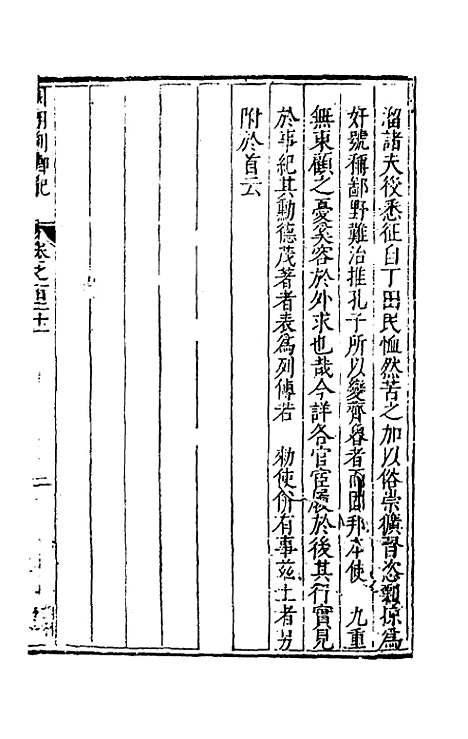 溜諸夫役悉征白丁田民恤然苦之加以俗崇獷習恣剽掠為
奸號稱鄙野難治推孔子所以變齊魯者而固邦本使 九重
無東顧之憂奚容於外求也哉今詳各官宦履於後其行實見
於事紀其勳德茂著者表爲列傳若 勑使併有事茲土者另
附於首云
列卿紀
卷之百二十